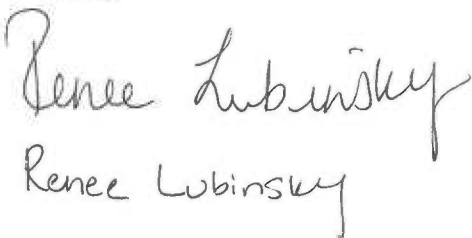 Renee Lubinsky
Renee Lubinsky